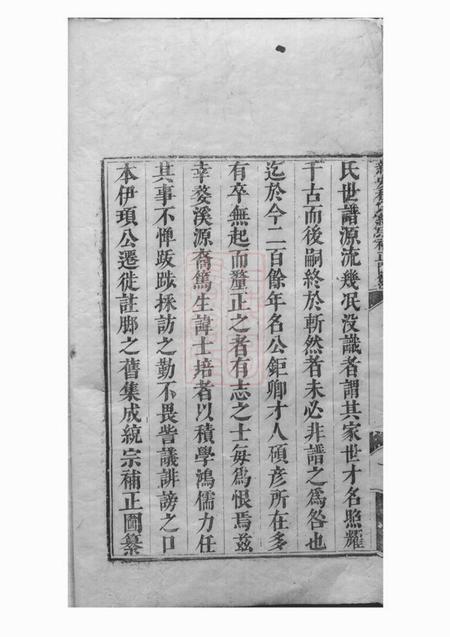 氏世譜源流幾冺没識者謂其家世才名照耀
千古而後嗣終於斬然者未必非譜之爲咎也
迄於今二百餘年名公鉅卿才人碩彦所在多
有卒無起而釐正之者有志之士每爲恨焉兹
幸婺溪源裔篤生諱士培者以積學鴻儒力任
其事不憚跋涉採訪之勤不畏訾議誹謗之口
本伊項公遷徙註脚之舊集成統宗補正圖纂